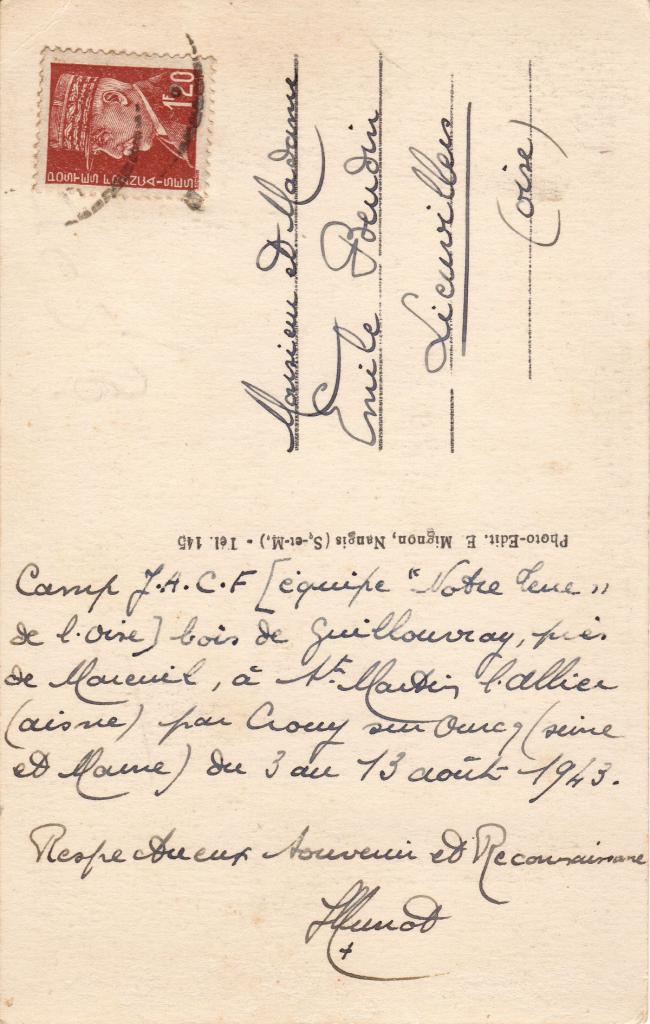 POSTES FRANÇAISES
1F20
Monsieur et Madame
Emile Beudin
Lieuvillers
(oise)
Photo-Edit. E. Mignon, Nangis (S.-et-M.) - Tél. 145
Camp J.A.C.F [équipe "Notre Terre"
de l'oise] bois de Guillouvray, près
de Mareuil, à St Martin l'allier
(aisne) par Crouy sur Ourcq (seine
et Marne) du 3 au 13 août 1943.
Respectueux Souvenir et Reconnaissance